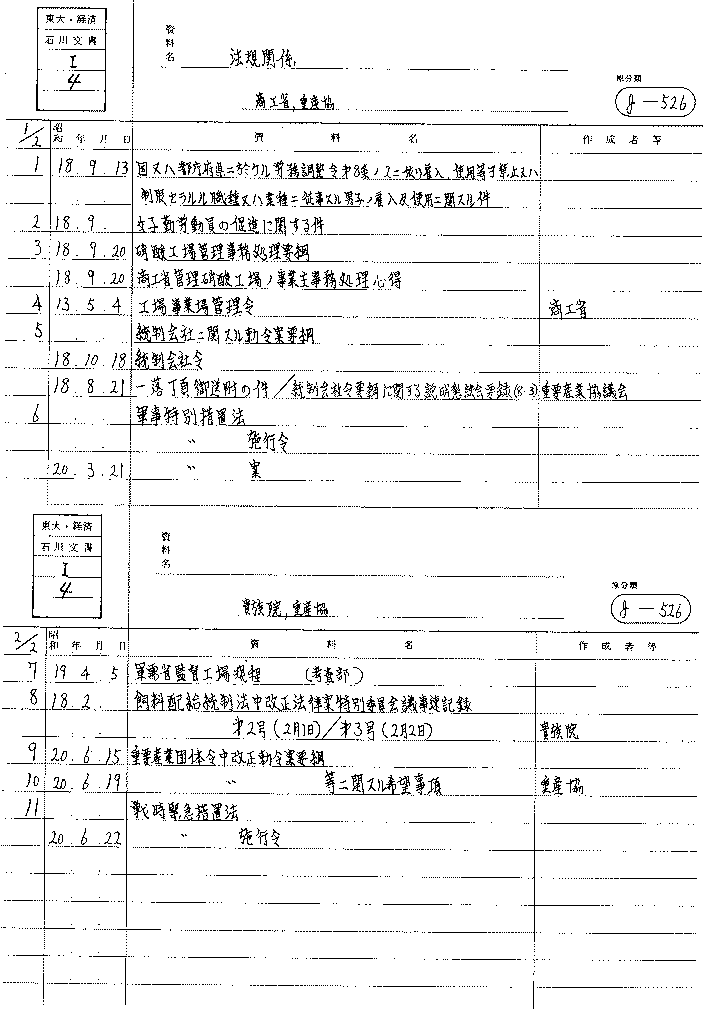 東大・経済
石川文書
I
4
資料名 法規関係
商工省, 重産協
原分類
J-526
1/2 昭和 年 月 日 資料名 作成者等
1 18.9.13 国又ハ都庁府県ニ於ケル労務調整令第8条ノ2ニ依リ雇入, 使用等ヲ禁止又ハ
制限セラルル職種又ハ業種ニ従事スル男子ノ雇入及使用ニ関スル件
2 18.9. 女子勤労動員の促進に関する件
3 18.9.20 硝酸工場管理事務処理要綱
18.9.20 商工省管理硝酸工場ノ事業主事務処理心得
4 13.5.4 工場事業場管理令 商工省
5 統制会社ニ関スル勅令案要綱
18.10.18 統制会社令
18.8.21 一落丁頁御送附の件/統制会社令要綱に関する説明懇談会要録(8.3) 重要産業協議会
6 軍事特別措置法
〃 施行令
20.3.21 〃 案
東大・経済
石川文書
I
4
資料名
貴族院, 重産協
原分類
J-526
2/2 昭和 年 月 日 資料名 作成者等
7 19.4.5 軍需省監督工場規程 (考査部)
8 18.2. 飼料配給統制法中改正法律案特別委員会議事速記録
第2号(2月1日)/第3号(2月2日) 貴族院
9 20.6.15 重要産業団体令中改正勅令案要綱
10 20.6.19 〃 等ニ関スル希望事項 重産協
11 戦時緊急措置法
20.6.22 〃 施行令